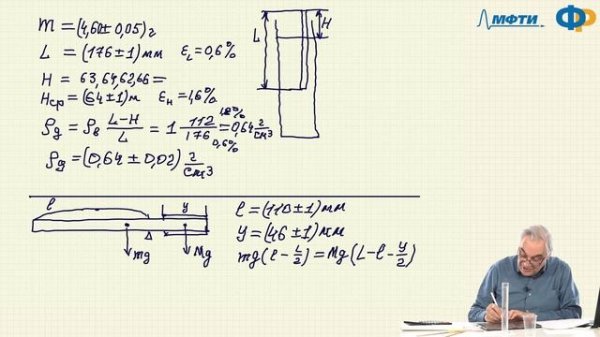 m = (4,60 ± 0,05) г
L = (176 ± 1) мм   ε_L = 0,6%
H = 63, 64, 62, 66 =
H_ср = (64 ± 1) м   ε_H = 1,6%
ρ_д = ρ_в (L-H)/L = 1 112/176 = 0,64 г/см³
0,6%
ρ_д = (0,64 ± 0,02) г/см³
L
H
МФТИ
l
y
Δ
mg
Mg
l = (110 ± 1) мм
y = (46 ± 1) мм
mg(l - L/2) = Mg(L - l - y/2)